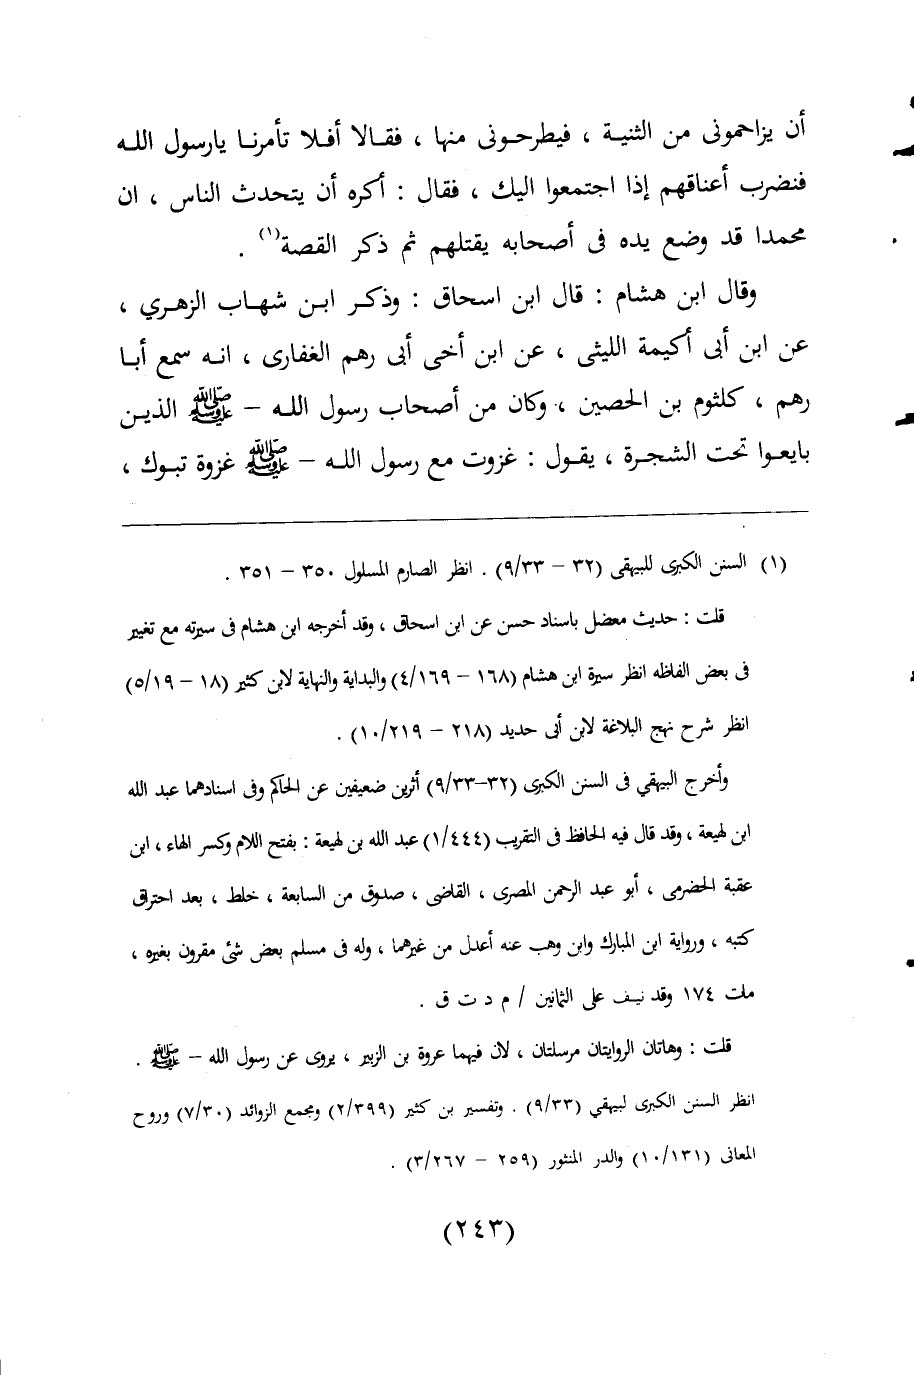 أن يزاحمونى من الثنية ، فيطرحونى منها ، فقالا أفلا تأمرنا يارسول الله
فنضرب أعناقهم إذا اجتمعوا اليك ، فقال : أكره أن يتحدث الناس ، ان
محمدا قد وضع يده فى أصحابه يقتلهم ثم ذكر القصة(١) .
وقال ابن هشام : قال ابن اسحاق : وذكر ابن شهاب الزهري ،
عن ابن أبى أكيمة الليثى ، عن ابن أخى أبى رهم الغفارى ، انه سمع أبا
رهم ، كلثوم بن الحصين ، وكان من أصحاب رسول الله – ﷺ الذين
بايعوا تحت الشجرة ، يقول : غزوت مع رسول الله – ﷺ غزوة تبوك ،
(١) السنن الكبرى للبيهقى (٣٢ – ٩/٣٣) . انظر الصارم المسلول ٣٥٠ – ٣٥١ .
قلت : حديث معضل باسناد حسن عن ابن اسحاق ، وقد أخرجه ابن هشام فى سيرته مع تغيير
فى بعض الفاظه انظر سيرة ابن هشام (١٦٨ – ٤/١٦٩) والبداية والنهاية لابن كثير (١٨ – ٥/١٩)
انظر شرح نهج البلاغة لابن أبى حديد (٢١٨ – ١٠/٢١٩) .
وأخرج البيهقي فى السنن الكبرى (٣٢–٩/٣٣) أثرين ضعيفين عن الحاكم وفى اسنادهما عبد الله
ابن لهيعة ، وقد قال فيه الحافظ فى التقريب (١/٤٤٤) عبد الله بن لهيعة : بفتح اللام وكسر الهاء ، ابن
عقبة الحضرمى ، أبو عبد الرحمن المصرى ، القاضى ، صدوق من السابعة ، خلط ، بعد احتراق
كتبه ، ورواية ابن المبارك وابن وهب عنه أعدل من غيرهما ، وله فى مسلم بعض شئ مقرون بغيره ،
مات ١٧٤ وقد نيف على الثمانين / م د ت ق .
قلت : وهاتان الروايتان مرسلتان ، لان فيهما عروة بن الزبير ، يروى عن رسول الله – ﷺ .
انظر السنن الكبرى لبيهقي (٩/٣٣) . وتفسير بن كثير (٢/٣٩٩) ومجمع الزوائد (٧/٣٠) وروح
المعانى (١٠/١٣١) والدر المنثور (٢٥٩ – ٣/٢٦٧) .
(٢٤٣)